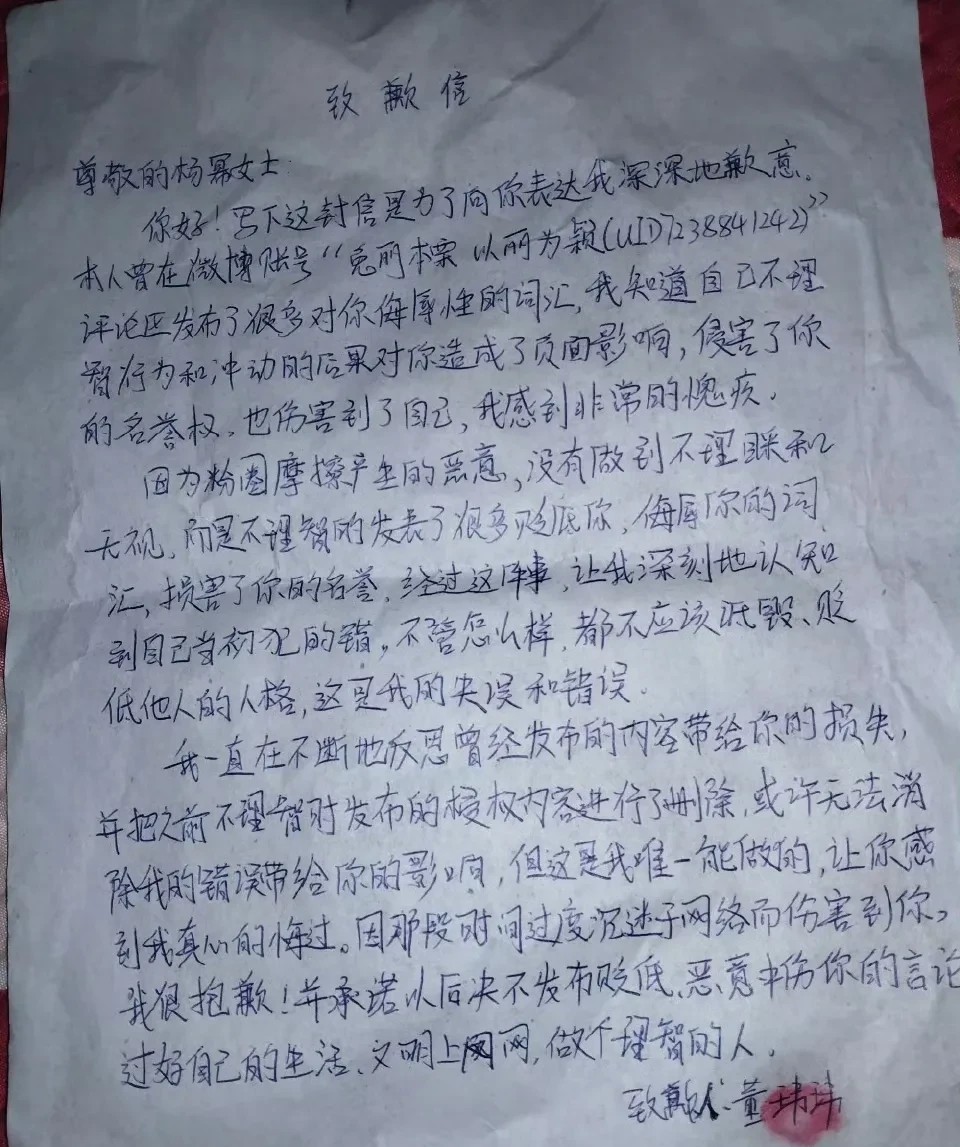 致歉信
尊敬的杨幂女士:
你好!写下这封信是为了向你表达我深深地歉意。
本人曾在微博账号“兔丽本票 以丽为颖(UID7238841242)”
评论区发布了很多对你侮辱性的词汇,我知道自己不理
智行为和冲动的后果对你造成了负面影响,侵害了你
的名誉权,也伤害到了自己,我感到非常的愧疚.
因为粉圈摩擦产生的恶意,没有做到不理睬和
无视,而是不理智的发表了很多贬低你,侮辱你的词
汇,损害了你的名誉.经过这件事,让我深刻地认知
到自己当初犯的错,不管怎么样,都不应该诋毁、贬
低他人的人格,这是我的失误和错误.
我一直在不断地反思曾经发布的内容带给你的损失,
并把之前不理智时发布的侵权内容进行了删除,或许无法消
除我的错误带给你的影响,但这是我唯一能做的,让你感
到我真心的悔过。因那段时间过度沉迷于网络而伤害到你,
我很抱歉!并承诺以后决不发布贬低、恶意中伤你的言论
过好自己的生活、文明上网,做个理智的人.
致歉人:董玮玮